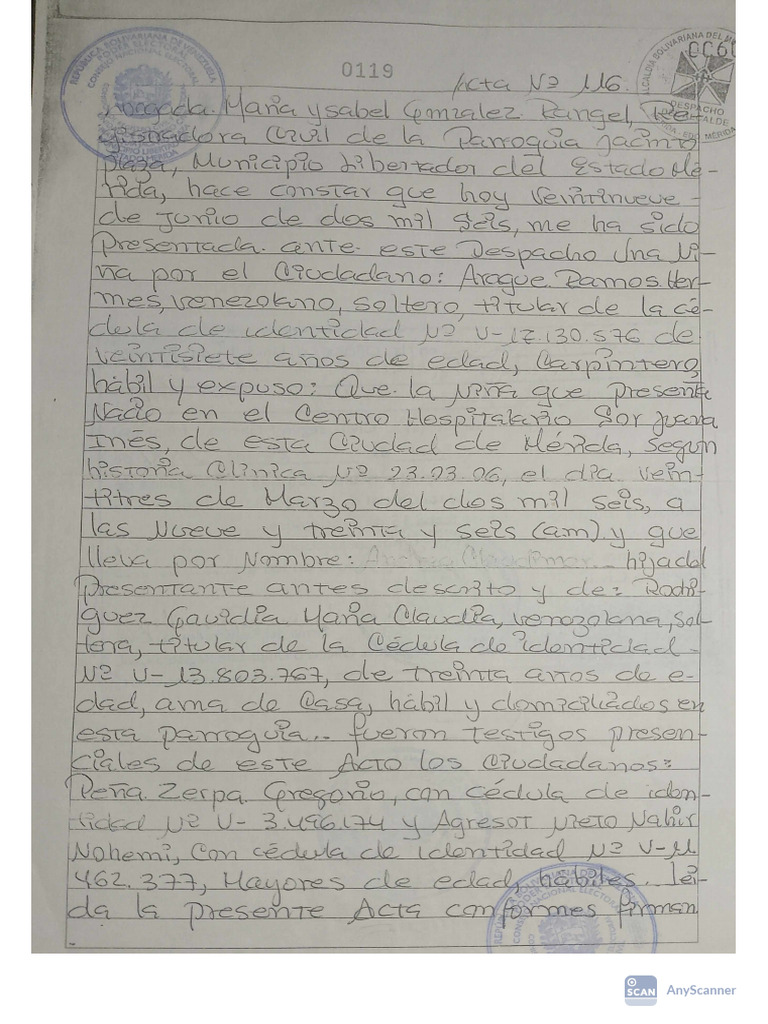 REPÚBLICA BOLIVARIANA DE VENEZUELA
PODER ELECTORAL
CONSEJO NACIONAL ELECTORAL
ALCALDÍA BOLIVARIANA DEL
DESPACHO
0119
Acta Nº 116.
Abogada. María Ysabel Gonzalez Rangel, Re-
gistradora Civil de la Parroquia Jacinto
Plaza, Municipio Libertador del Estado Mé-
rida, hace constar que hoy Veintinueve -
de Junio de dos mil Seis, me ha sido
Presentada. ante. este Despacho Una Ni-
ña por el Ciudadano: Araque Ramos. Her-
mes, venezolano, soltero, titular de la cé-
dula de identidad Nº V-12.130.576 de
veintisiete años de edad, Carpintero,
hábil y expuso: Que. la Niña que presenta
Nació en el Centro Hospitalario Sor Juana
Inés, de esta Ciudad de Mérida, Según
historia Clínica Nº 23.03.06, el día vein-
titres de Marzo del dos mil seis, a
las Nueve y treinta y seis (am) y que
lleva por Nombre: hija del
Presentante antes descrito y de: Rodrí-
guez Gavidia María Claudia, venezolana, Sol-
tera, titular de la Cédula de identidad -
Nº V-13.803.767, de treinta años de e-
dad, ama de Casa, hábil y domiciliados en
esta Parroquia.. fueron testigos presen-
ciales de este Acto los Ciudadanos:
Peña Zerpa Gregorio, con cédula de iden-
tidad Nº V- 3.496.174 y Agresot Nieto Nahir
Nohemi, Con cédula de identidad Nº V-11
462.377, Mayores de edad, hábiles.. leí-
da la presente Acta conformes firman
SCAN AnyScanner